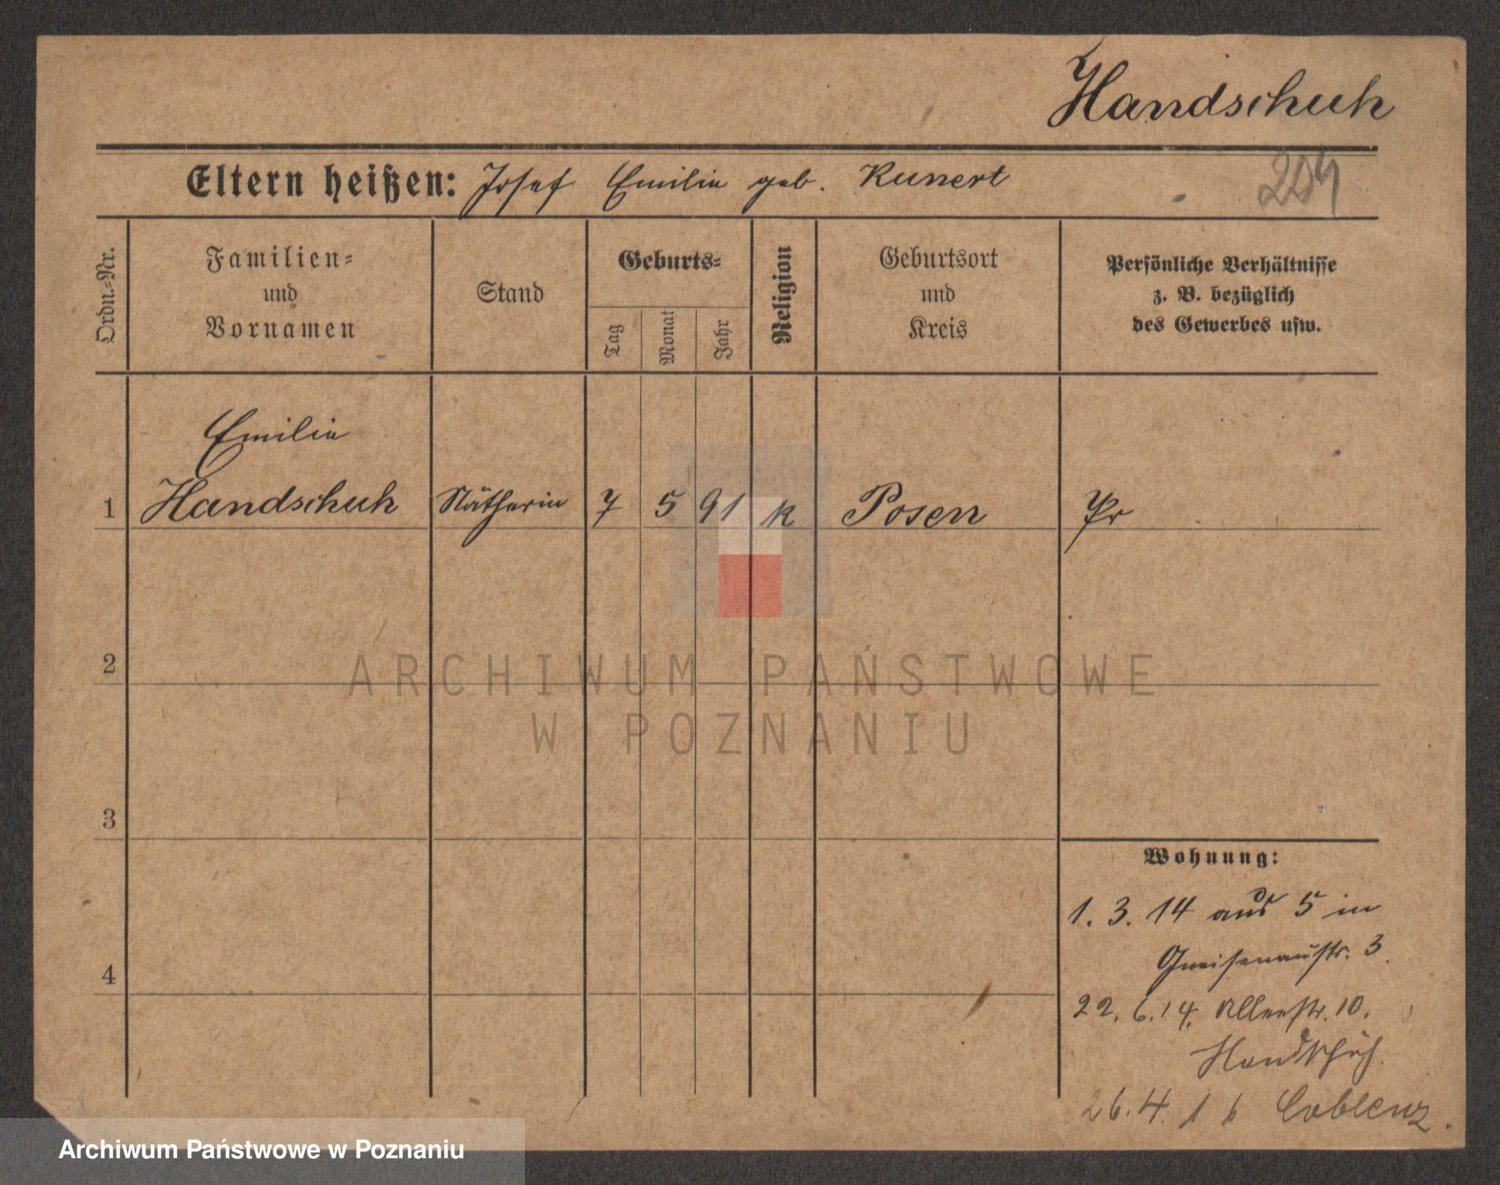 Handschuh
Eltern heißen: Josef Emilie geb. Kunert
204
Ordn.-Nr.
Familien-
und
Vornamen
Stand
Geburts-
Tag
Monat
Jahr
Religion
Geburtsort
und
Kreis
Persönliche Verhältnisse
z. B. bezüglich
des Gewerbes usw.
Emilie
1 Handschuh Nätherin 7 5 91 K Posen Pr
2
ARCHIWUM PAŃSTWOWE
W POZNANIU
3
Wohnung:
1. 3. 14 aus 5 in
Gneisenaustr. 3.
4
22. 6. 14. Alleestr. 10.
Handschuh.
26. 4. 16 Coblenz.
Archiwum Państwowe w Poznaniu